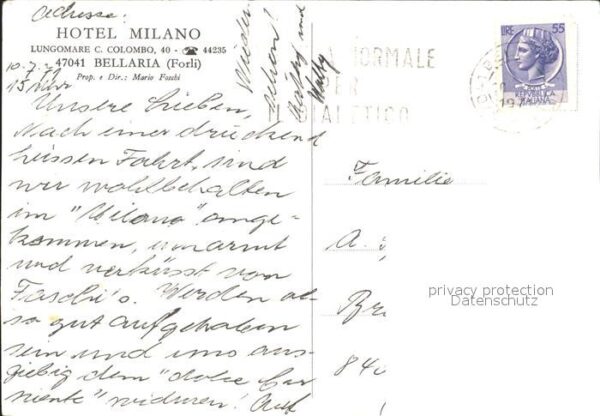 Adresse:
HOTEL MILANO
LUNGOMARE C. COLOMBO, 40 - ☎ 44235
47041 BELLARIA (Forlì)
Prop. e Dir.: Mario Foschi
10.7.
15 Uhr
Unsere Lieben,
Nach einer drückend
heissen Fahrt, sind
wir wohlbehalten
im "Milano" ange-
kommen, umarmt
und verküsst von
Foschi's. Werden al-
so gut aufgehoben
sein und uns aus-
giebig dem "dolce far
niente" widmen! Auf
Wieder-
sehen!
und
NORMALE
PER
LIRE 55
REPVBBLICA
ITALIANA
Familie
A.
Br
840
privacy protection
Datenschutz